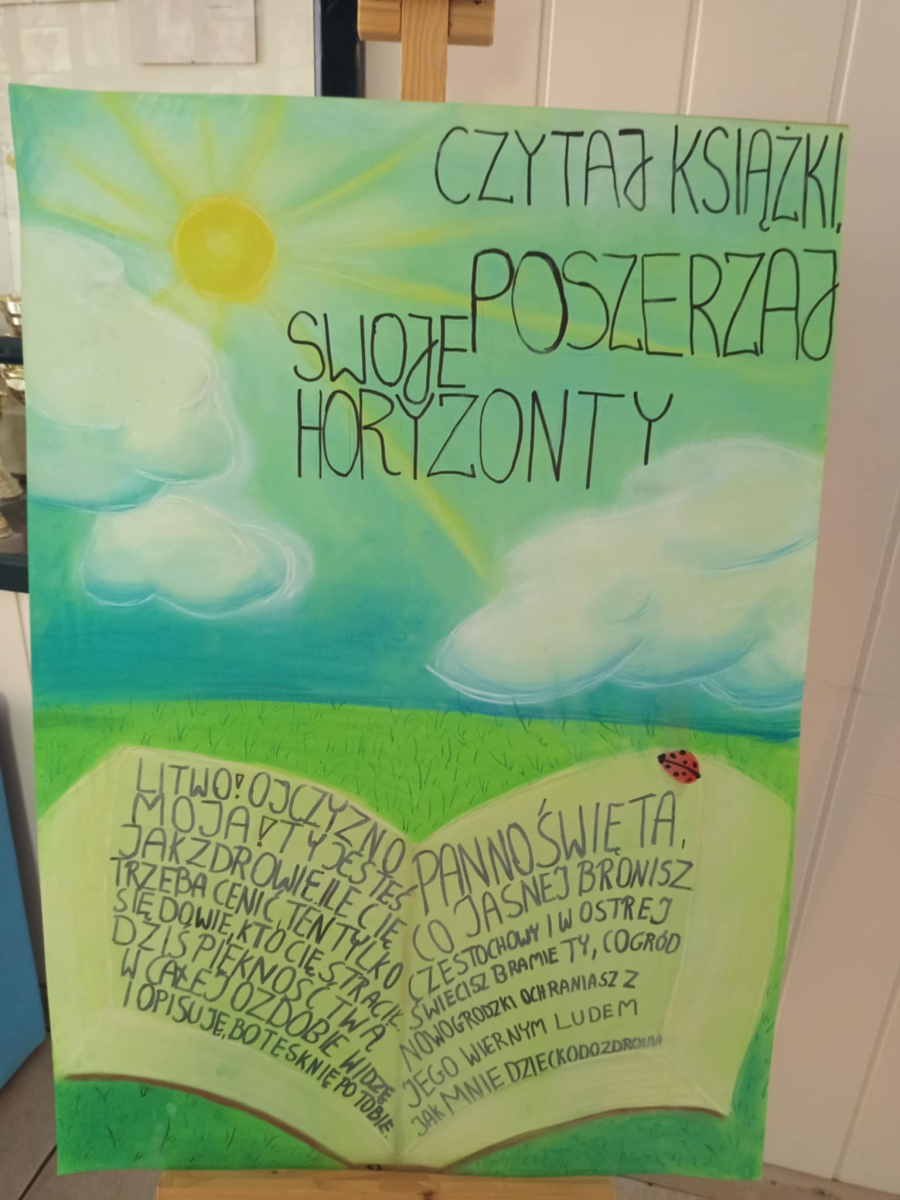 CZYTAJ KSIĄŻKI,
POSZERZAJ
SWOJE
HORYZONTY
LITWO! OJCZYZNO
MOJA! TY JESTEŚ
JAK ZDROWIE, ILE CIĘ
TRZEBA CENIĆ, TEN TYLKO
SIĘ DOWIE, KTO CIĘ STRACIŁ.
DZIŚ PIĘKNOŚĆ TWĄ
W CAŁEJ OZDOBIE WIDZĘ
I OPISUJĘ, BO TĘSKNIĘ PO TOBIE.
PANNO ŚWIĘTA,
CO JASNEJ BRONISZ
CZĘSTOCHOWY I W OSTREJ
ŚWIECISZ BRAMIE TY, CO GRÓD
NOWOGRODZKI OCHRANIASZ Z
JEGO WIERNYM LUDEM
JAK MNIE DZIECKO DO ZDROWIA